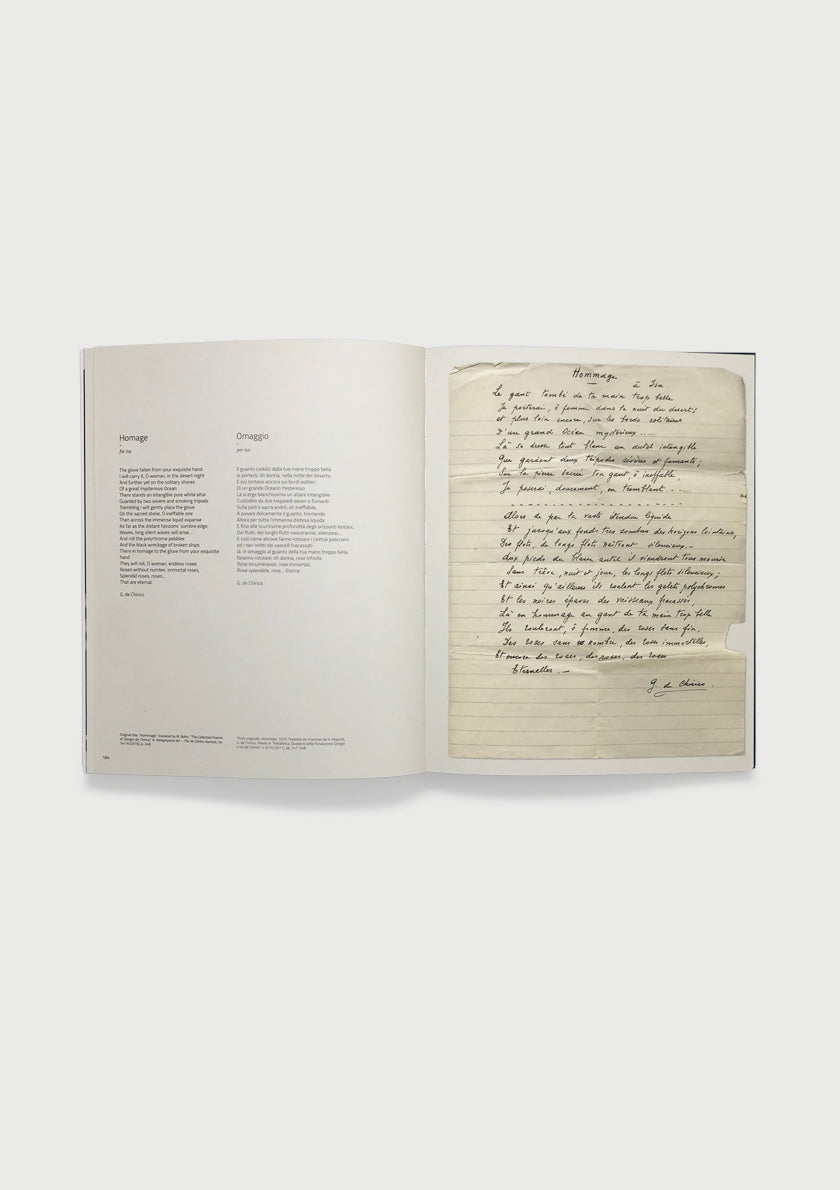 Homage
–
for Isa
The glove fallen from your exquisite hand
I will carry it, O woman, in the desert night
And further yet on the solitary shores
Of a great mysterious Ocean
There stands an intangible pure white altar
Guarded by two severe and smoking tripods
Trembling I will gently place the glove
On the sacred stone, O ineffable one
Then across the immense liquid expanse
As far as the distant horizons' sombre edge,
Waves, long silent waves will arise...
And roll the polychrome pebbles
And the black wreckage of broken ships
There in homage to the glove from your exquisite
hand
They will roll, O woman, endless roses.
Roses without number, immortal roses,
Splendid roses, roses...
That are eternal.
G. de Chirico
Omaggio
–
per Isa
Il guanto caduto dalla tua mano troppo bella
Io porterò, oh donna, nella notte del deserto
E più lontano ancora sui bordi solitari
Di un grande Oceano misterioso
Là si erge bianchissimo un altare intangibile
Custodito da due treppiedi severi e fumanti
Sulla pietra sacra andrò, oh ineffabile,
A posare dolcemente il guanto, tremando
Allora per tutta l'immensa distesa liquida
E fino alle scurissime profondità degli orizzonti lontani,
Dei flutti, dei lunghi flutti nasceranno, silenziosi...
E così come altrove fanno rotolare i ciottoli policromi
ed i neri relitti dei vascelli fracassati
là, in omaggio al guanto della tua mano troppo bella
Faranno rotolare, oh donna, rose infinite.
Rose innumerevoli, rose immortali,
Rose splendide, rose... Eterne
G. de Chirico
Original title, "Hommage," translated by W. Bohn, "The Collected Poems
of Giorgio de Chirico," in Metaphysical Art – The de Chirico Journals, no.
14/16 (2016), p. 248.
Titolo originale, Hommage, Tradotto dal francese da V.
G. de Chirico, Poesie, in "Metafisica. Quaderni della Fondazione Giorgio
e Isa de Chirico", n. 9/10 (2011), pp.
184
Hommage
à Isa.
Le gant tombé de ta main trop belle
Je porterai, ô femme dans la nuit du désert;
et plus loin encore, sur les bords solitaires
D'un grand Océan mystérieux .....
Là se dresse tout blanc un autel intangible
Que gardent deux trépieds sévères et fumants;
Sur la pierre sacrée ton gant ô ineffable,
Je poserai, doucement, en tremblant .....
- - - - - - - - - - - - - - - - -
Alors de par la vaste étendue liquide
Et jusqu'aux fonds très sombres des horizons lointains,
Des flots, de longs flots naîtront silencieux. —
Aux pieds du blanc autel ils viendront tous mourir
Sans trève, nuit et jour, les longs flots silencieux;
Et ainsi qu'ailleurs ils roulent les galets polychromes
Et les noires épaves des vaisseaux fracassés,
Là en hommage au gant de ta main trop belle
Ils rouleront, ô femme, des roses sans fin,
Des roses sans nombre, des roses immortelles,
Et encore des roses, des roses, des roses
Eternelles. —
G. de Chirico.